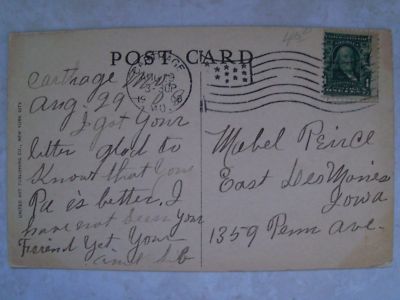 POST CARD
Carthage Mo.
Aug. 29
I got Your
letter glad to
Know that Your
Pa is better. I
have not seen your
Friend Yet Your
Mabel Peirce
East Des Moines
Iowa
1359 Penn Ave.
UNITED ART PUBLISHING CO., NEW YORK CITY